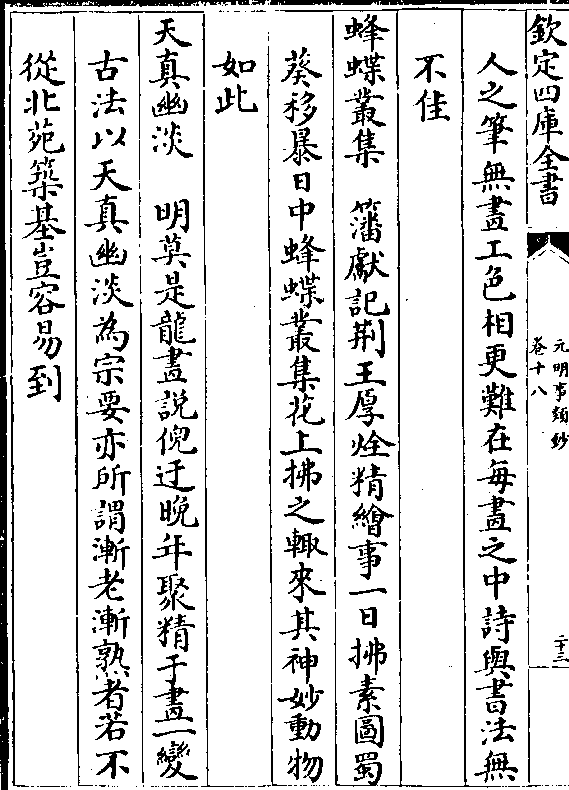 欽定四庫全書
元明事類鈔
卷十八
二十三
人之筆無畫工色相更難在每畫之中詩與書法無
不佳
蜂蝶叢集　籓獻記荆王厚烇精繪事一日拂素圖蜀
葵移暴日中蜂蝶叢集花上拂之輙來其神妙動物
如此
天真幽淡　明莫是龍畫説倪迂晚年聚精于畫一變
古法以天真幽淡為宗要亦所謂漸老漸熟者若不
從北苑築基豈容易到